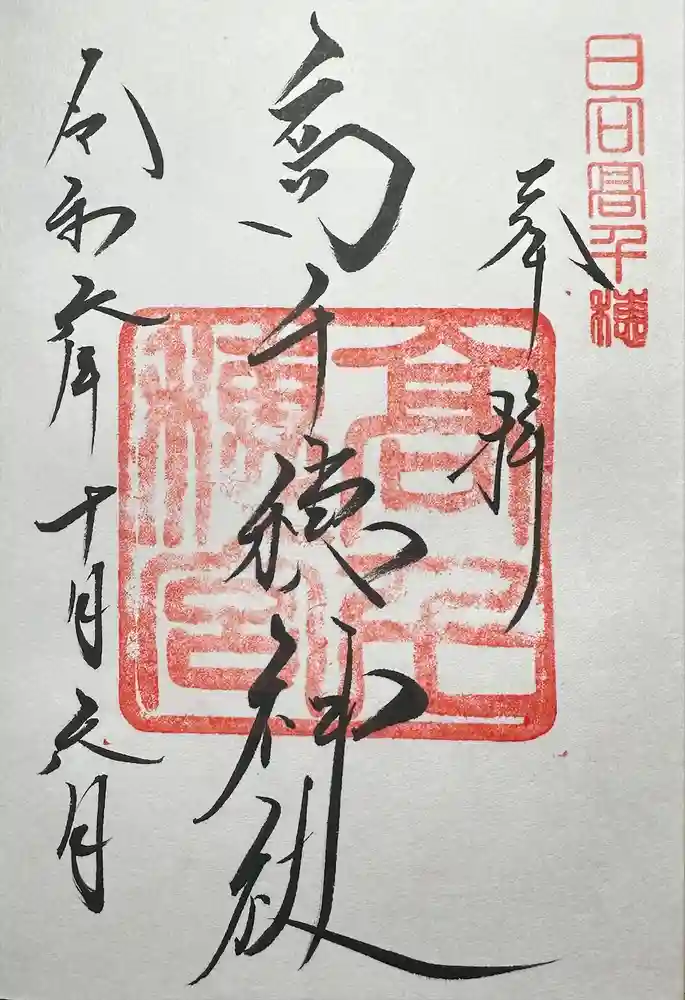 日向高千穂
奉拝
高千穂神社
高千
穂宮
令和六年十月六日